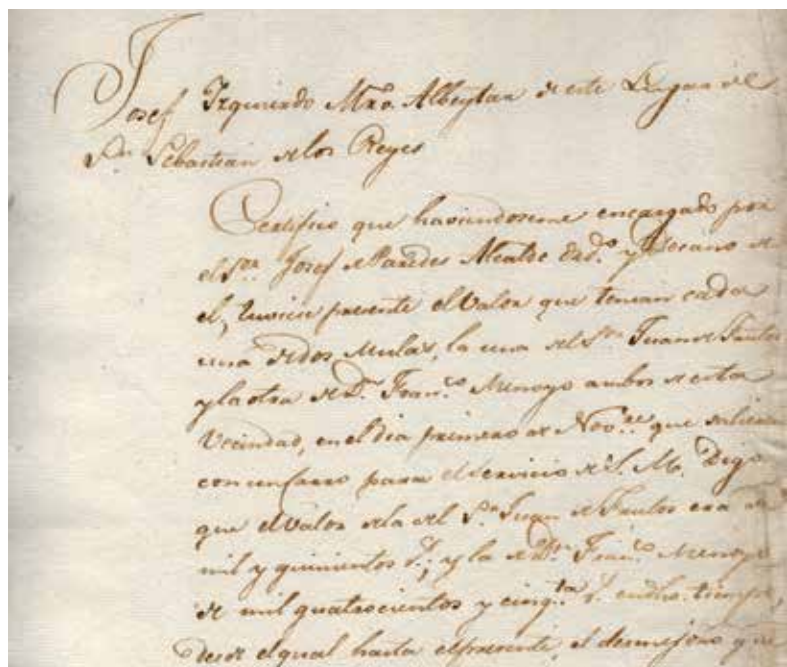 Josef Izquierdo Mro. Albeytar de este Lugar de
Sn. Sebastian de los Reyes
Certifico que haviendoseme encargado por
el Sor. Josef de Paredes Alcalde ordo. y Decano de
el, tuviese presente el valor que tenian cada
una de dos Mulas, la una del Sor. Juan de Frutos
y la otra de Dn. Franco. Menoyo ambos de esta
Vecindad, en el dia primero de Nove. que salieron
con un carro para el servicio de S. M. Digo
que el valor de la del Sr. Juan de Frutos era de
mil y quinientos rs.; y la de Dn. Franco. Menoyo
de mil quatrocientos y cinqta. rs. en dho. tiempo,
desde el qual hasta el presente, el desmejoro que